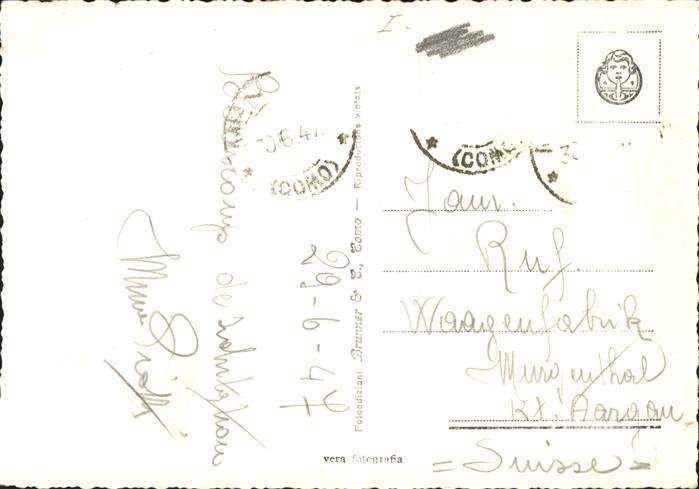 I.
30.6.47
(COMO)
(COMO)
30
de
29-6-47
Fotoedizioni Brunner & C., Como — Riproduzione vietata
vera fotografia
Fam.
Ruf.
Waagenfabrik
Murgenthal
Kt. Aargau
= Suisse =